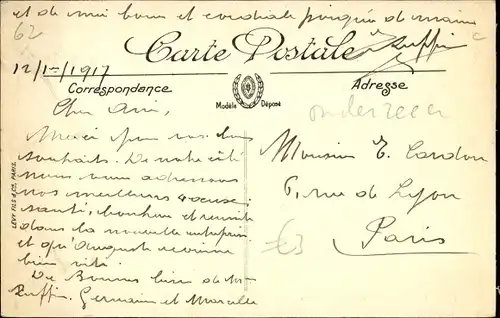 et de moi bonne et cordiale poignée de mains
62
Ruffin
Carte Postale
12/1er/1917
Correspondance
Adresse
Modèle Déposé
LÉVY FILS & Cie, PARIS.
Cher Ami,
Merci pour vos bons
souhaits. De notre côté
nous vous adressons
nos meilleurs vœux:
santé, bonheur et réussite
dans la nouvelle entreprise
et qu'Auguste revienne
bien vite.
De Bonnes bises de
Ruffin, Germaine et Marcelle
Monsieur E. Cardon
6, rue de Lyon
Paris
€3